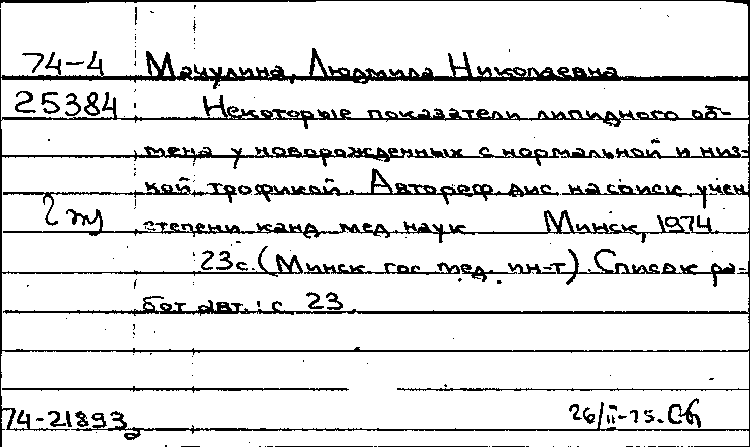 74-4 Мачулина, Людмила Николаевна
25384 Некоторые показатели липидного об-
мена у новорожденных с нормальной и низ-
кой трофикой. Автореф. дис. на соиск. учен.
степени канд. мед. наук Минск, 1974.
23с. (Минск. гос. мед. ин-т). Список ра-
бот авт.: с. 23.
74-21893 26/II-75.